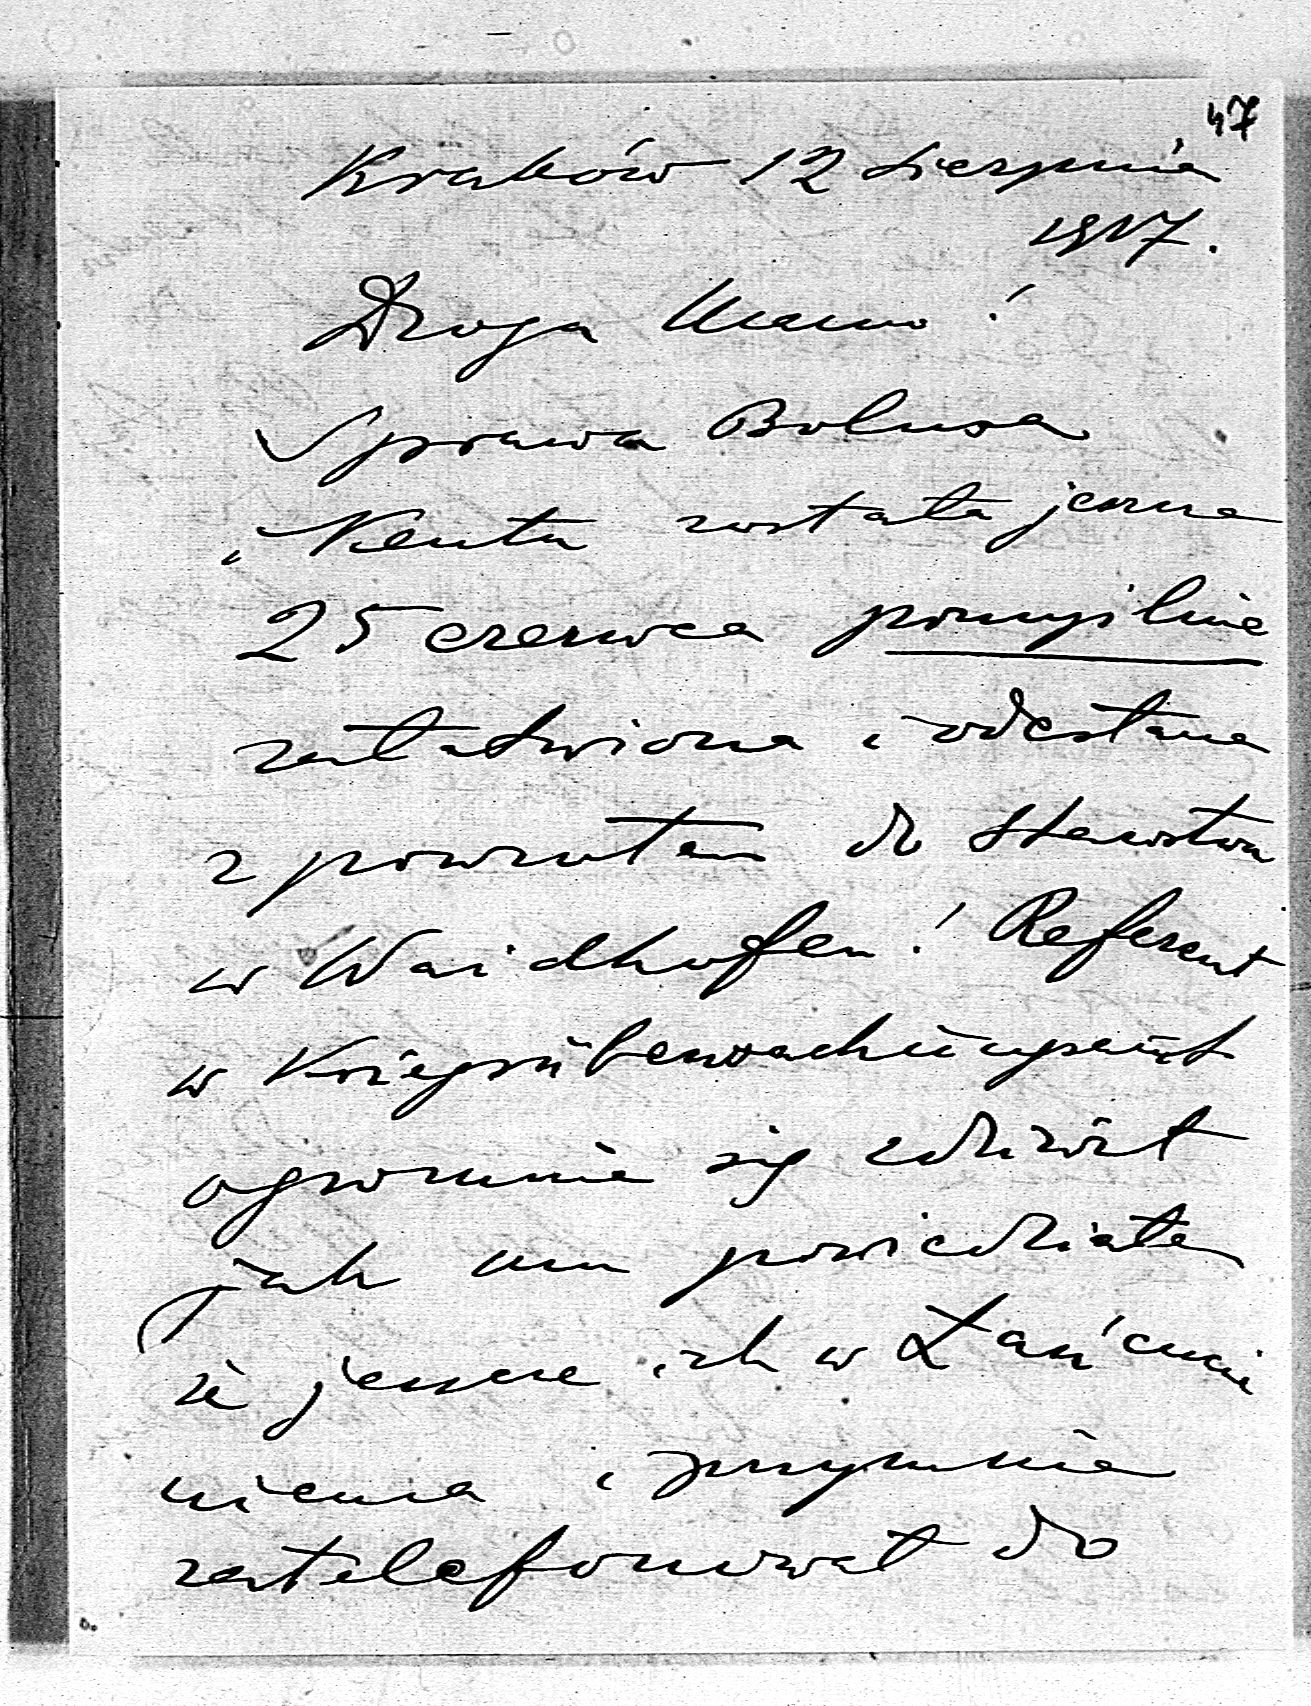 47
Kraków 12 sierpnia
1917.
Droga Mamo!
Sprawa Bolusa
i Kenta została jeszcze
25 czerwca pomyślnie
załatwiona i odesłana
z powrotem do Starostwa
w Waidhofen! Referent
w Kriegsüberwachungsamt
ogromnie się zdziwił
jak mu powiedziałem
że jeszcze ich w Łańcucie
niema i przy mnie
zatelefonował do